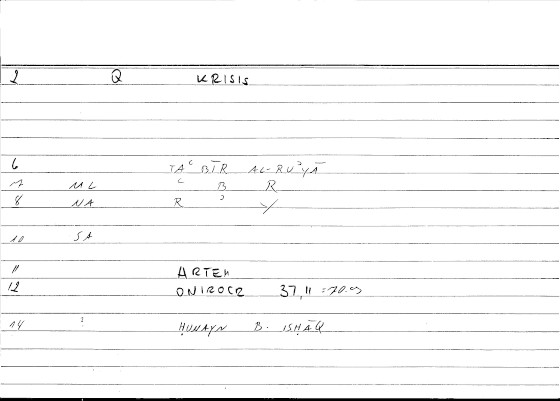 2 Q KRISIS
6 TAʿBĪR AL-RUʾYĀ
7 ML ʿ B R
8 NA R ʾ Y
10 SA
11 ARTEM
12 ONIROCR 37,11 =70.03
14 : ḤUNAYN B. ISḤĀQ